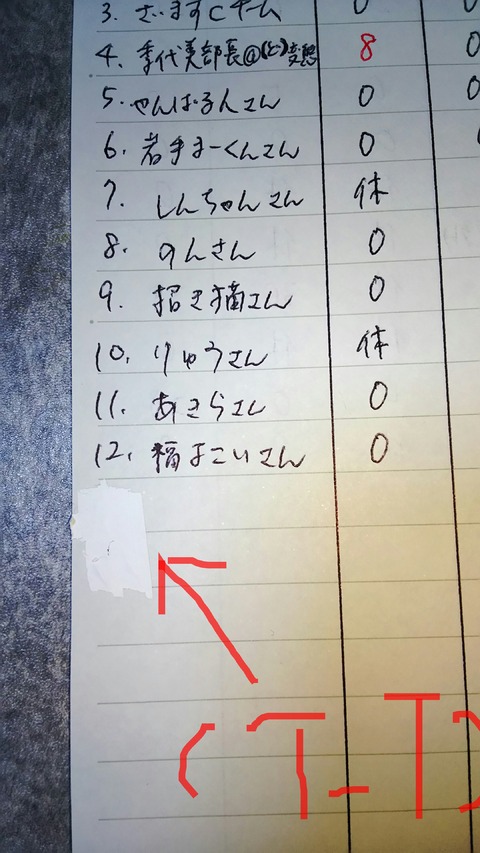 3. ざいますCチーム 0
4. 季代美部長@(と)変態 8 0
5. やんばるんさん 0 0
6. 若手まーくんさん 0
7. しんちゃんさん 休
8. のんさん 0
9. 招き猫さん 0
10. りゅうさん 休
11. あきらさん 0
12. 福よこいさん 0
(T_T)